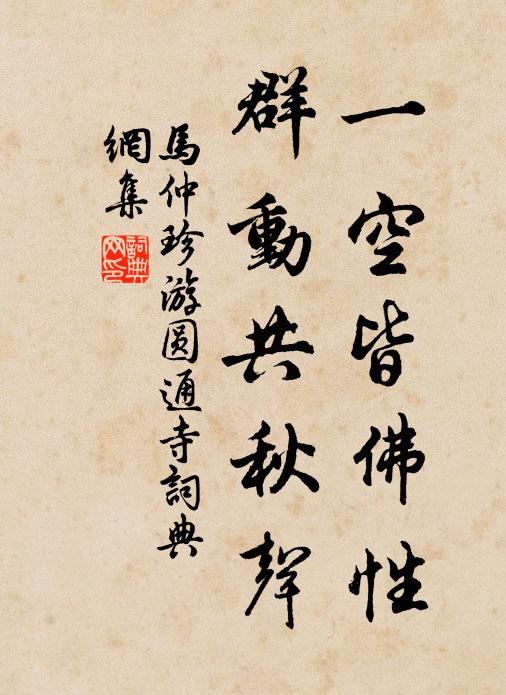 一空皆佛性
群動共秋聲
馬仲珍游圓通寺詞典
網集
詞典
网印